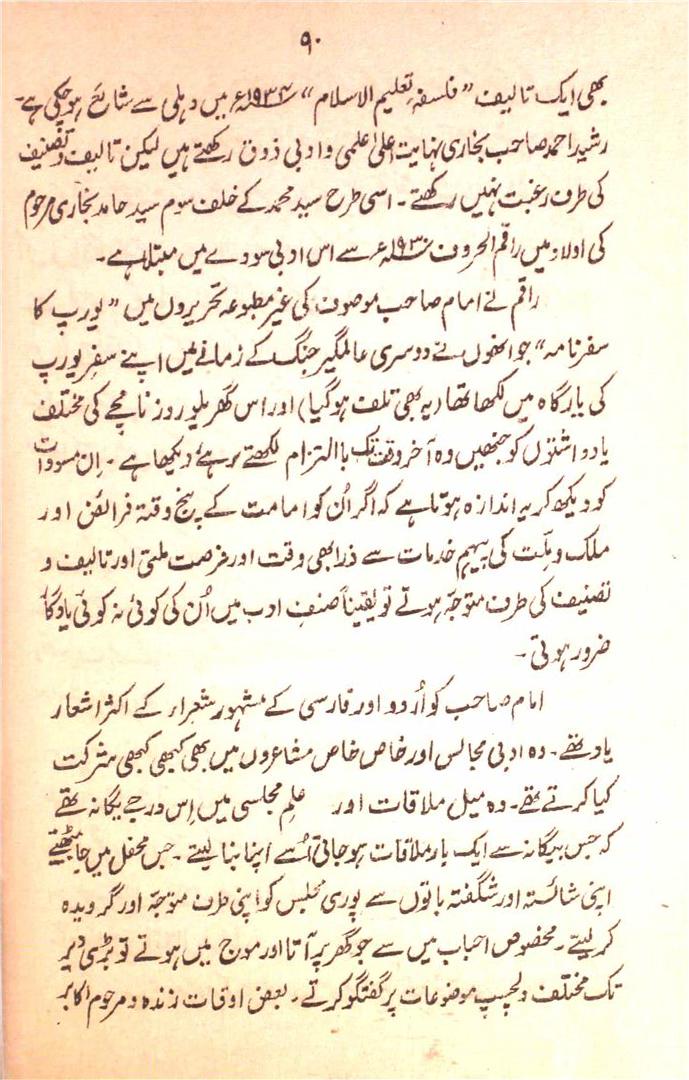 ۹۰
بھی ایک تالیف ”فلسفۂ تعلیم الاسلام“ ۱۹۳۴ء میں دہلی سے شائع ہو چکی ہے۔
رشید احمد صاحب بخاری نہایت اعلیٰ علمی و ادبی ذوق رکھتے ہیں لیکن تالیف و تصنیف
کی طرف رغبت نہیں رکھتے۔ اسی طرح سید محمد کے خلف سوم سید حامد بخاری مرحوم
کی اولاد میں راقم الحروف ۱۹۳۰ء سے اس ادبی سودے میں مبتلا ہے۔
راقم نے امام صاحب موصوف کی غیر مطبوعہ تحریروں میں ”یورپ کا
سفرنامہ“ جو انھوں نے دوسری عالمگیر جنگ کے زمانے میں اپنے سفرِ یورپ
کی یادگاہ میں لکھا تھا (یہ بھی تلف ہو گیا) اور اس گھریلو روزنامچے کی مختلف
یادداشتوں کو جنھیں وہ آخر وقت تک باالتزام لکھتے رہے دیکھا ہے۔ اِن مسودات
کو دیکھ کر یہ اندازہ ہوتا ہے کہ اگر اُن کو امامت کے پنج وقتہ فرائض اور
ملک و ملّت کی پیہم خدمات سے ذرا بھی وقت اور فرصت ملتی اور تالیف و
تصنیف کی طرف متوجّہ ہوتے تو یقیناً صنفِ ادب میں اُن کی کوئی نہ کوئی یادگار
ضرور ہوتی۔
امام صاحب کو اُردو اور فارسی کے مشہور شعراء کے اکثر اشعار
یاد تھے۔ وہ ادبی مجالس اور خاص خاص مشاعروں میں بھی کبھی کبھی شرکت
کیا کرتے تھے۔ وہ میل ملاقات اور علمِ مجلسی میں اِس درجے یگانہ تھے
کہ جس بیگانہ سے ایک بار ملاقات ہو جاتی اُسے اپنا بنا لیتے۔ جس محفل میں جا بیٹھتے
اپنی شائستہ اور شگفتہ باتوں سے پوری مجلس کو اپنی طرف متوجّہ اور گرویدہ
کر لیتے۔ مخصوص احباب میں سے جو گھر پر آتا اور موج میں ہوتے تو بڑی دیر
تک مختلف دلچسپ موضوعات پر گفتگو کرتے۔ بعض اوقات زندہ و مرحوم اکابر